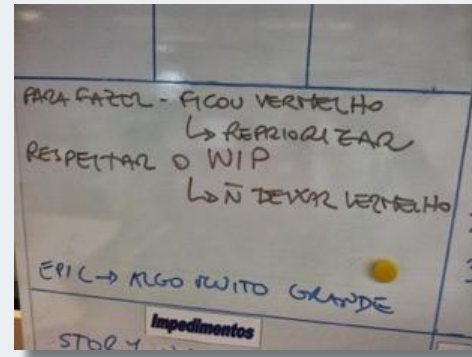 PARA FAZER - FICOU VERMELHO
↳ REPRIORIZAR
RESPEITAR O WIP
↳ Ñ DEIXAR VERMELHO
EPIC → ALGO MUITO GRANDE
Impedimentos
STORY